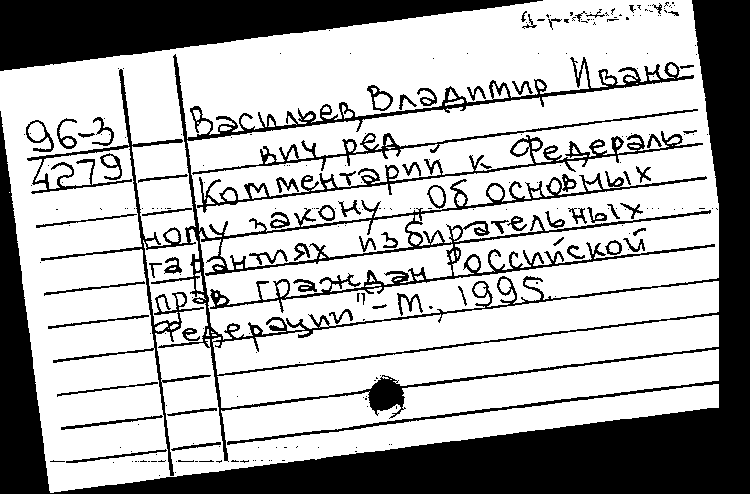 96-3
4279
Васильев, Владимир Ивано-
вич, ред
Комментарий к Федераль-
ному закону „Об основных
гарантиях избирательных
прав граждан Российской
Федерации"-М., 1995.